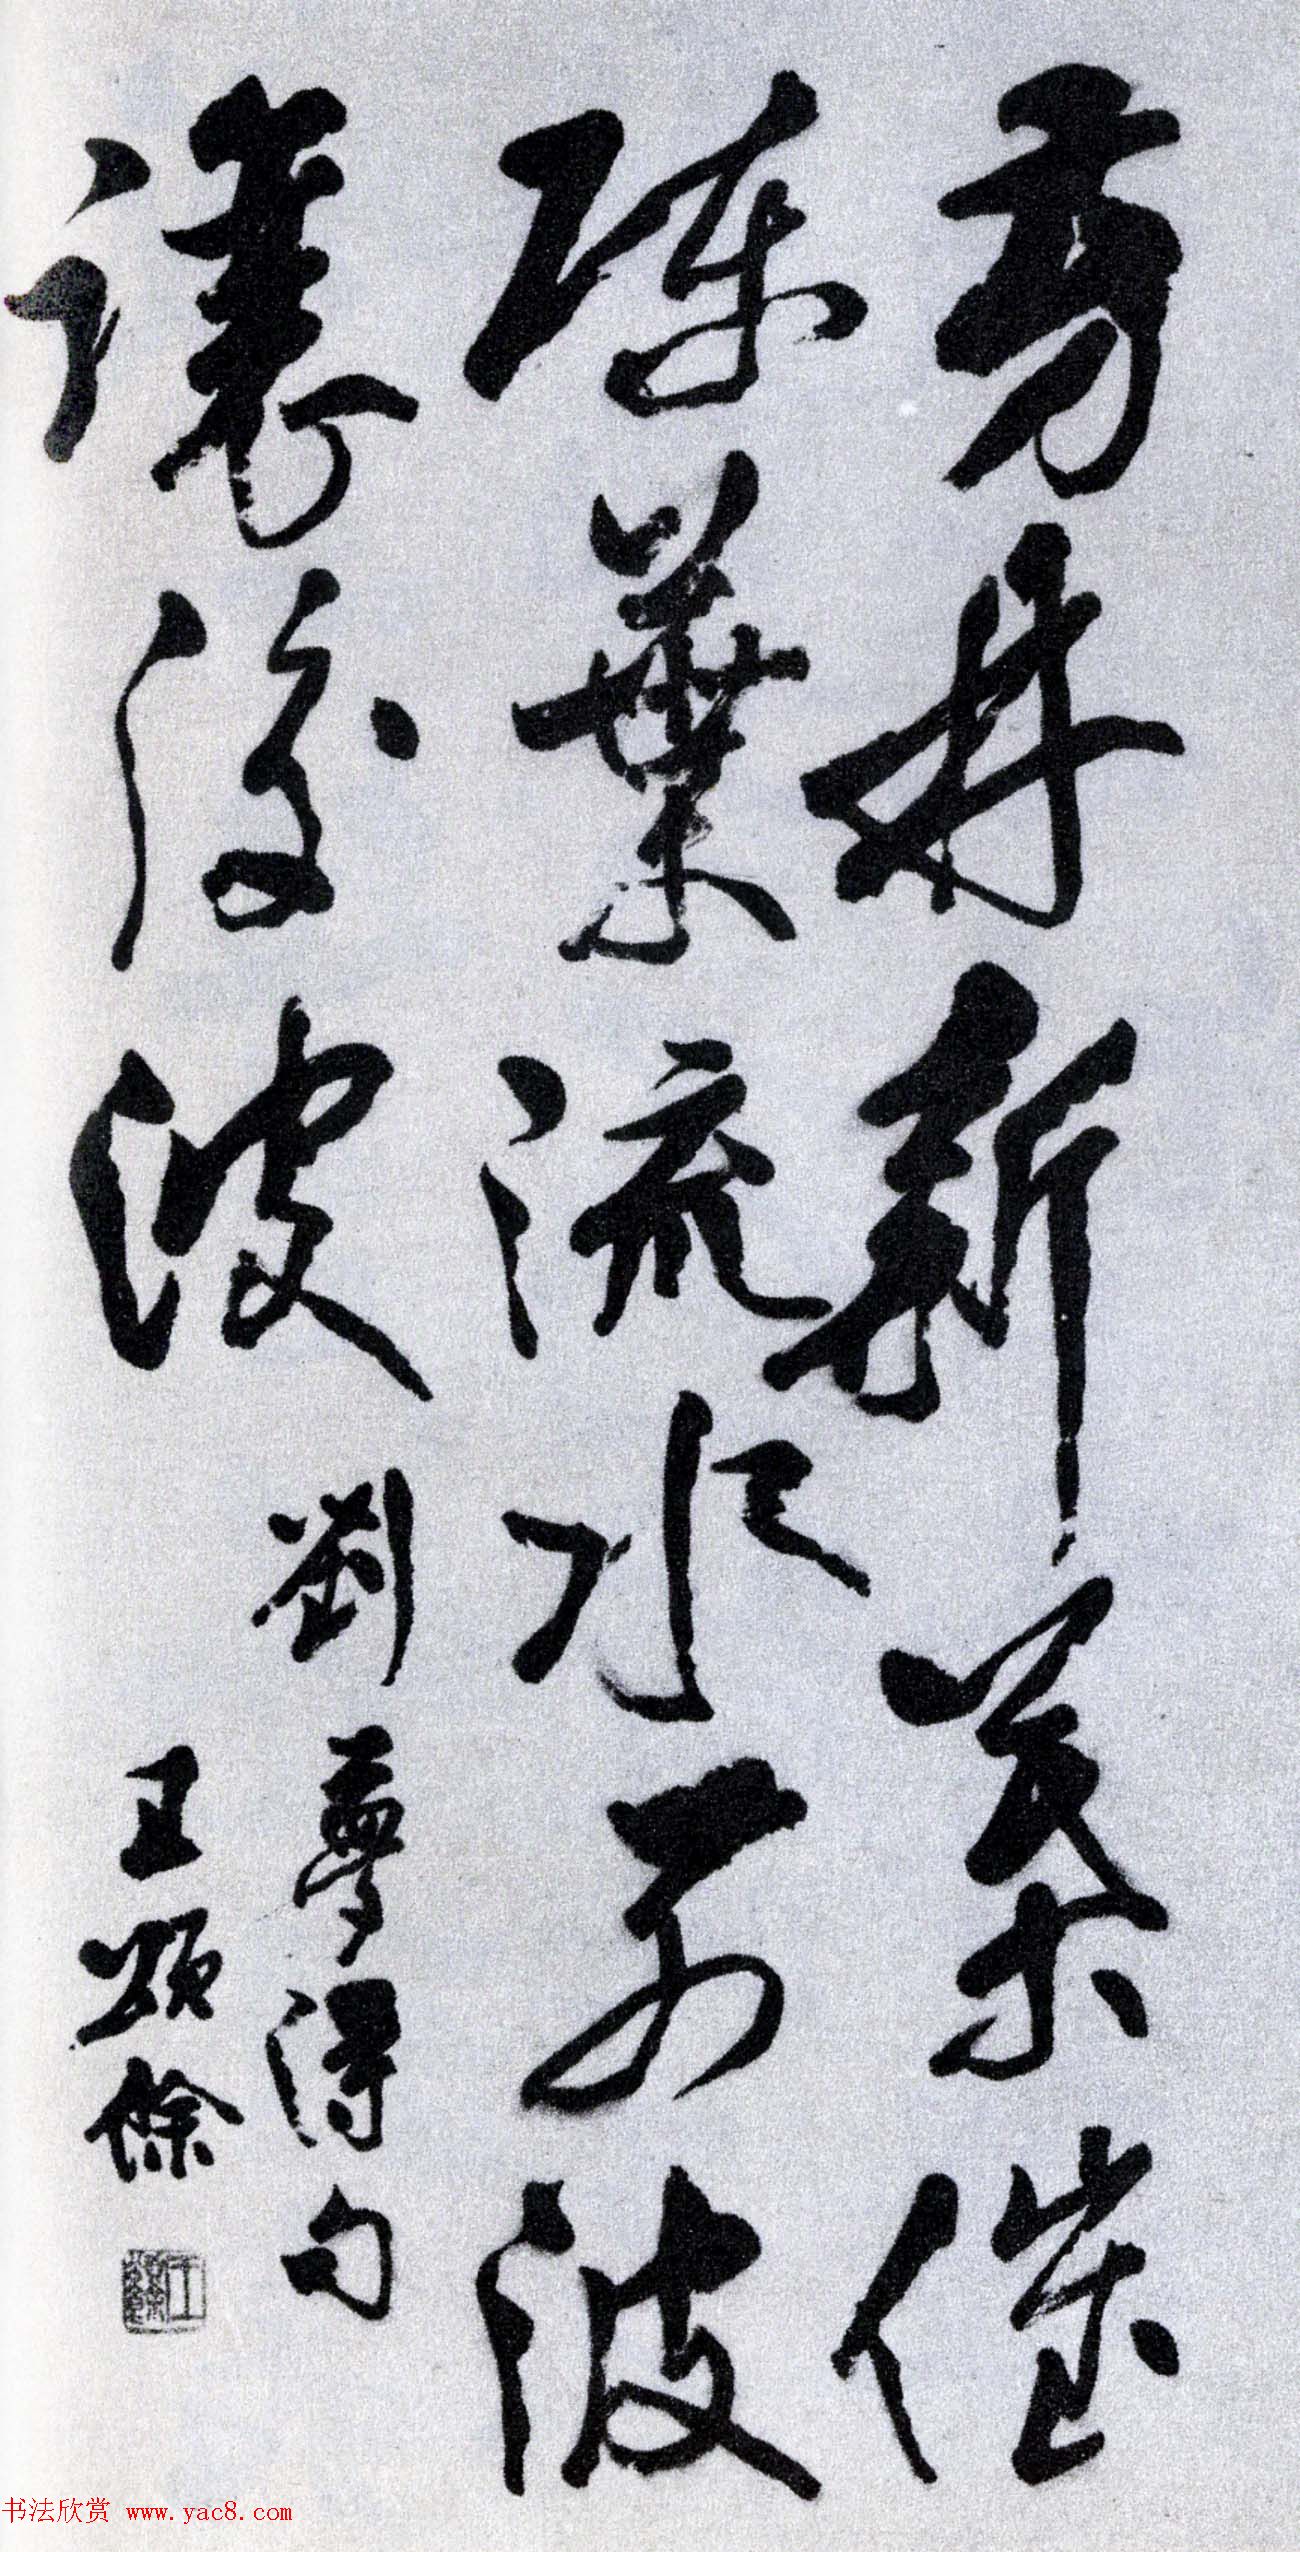 芳林新葉催
陳葉流水前波
讓後波
劉夢得句
王頌餘
书法欣赏 www.yac8.com